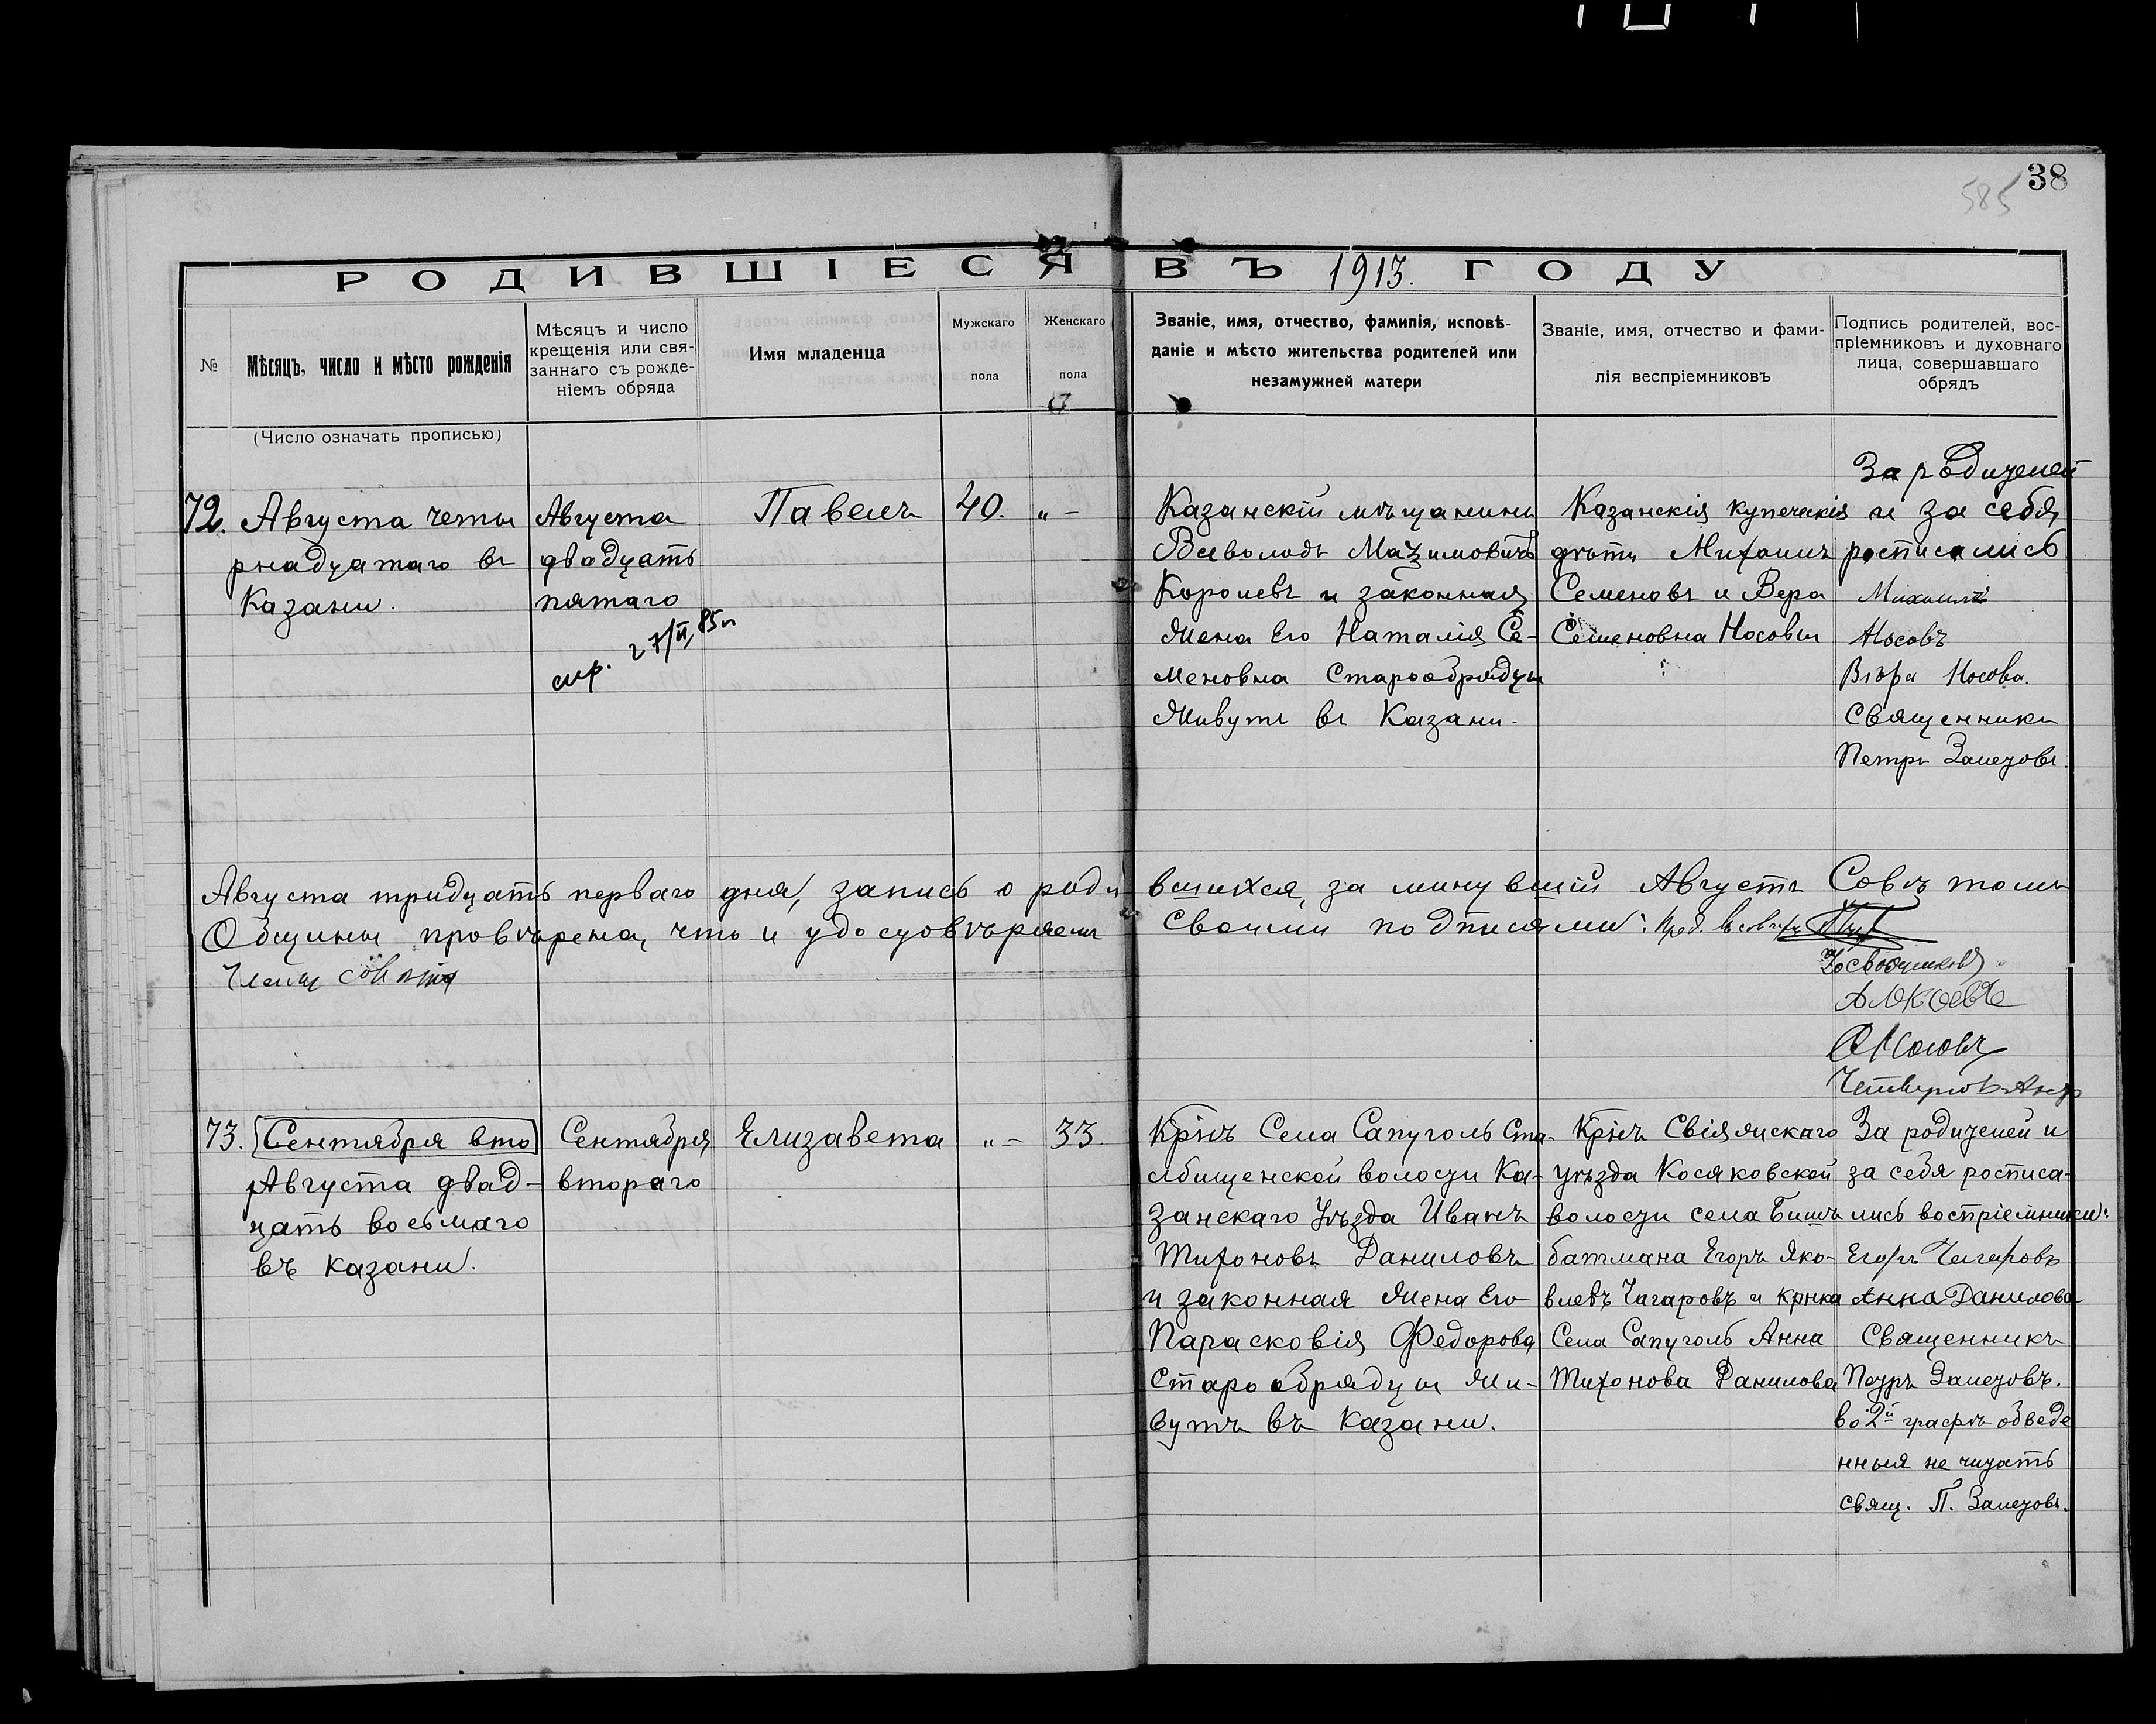 38
585
РОДИВШІЕСЯ ВЪ 1913. ГОДУ
№
Мѣсяцъ, число и мѣсто рожденія
(Число означать прописью)
Мѣсяцъ и число
крещенія или свя-
заннаго съ рожде-
ніемъ обряда
Имя младенца
Мужскаго
пола
Женскаго
пола
Званіе, имя, отчество, фамилія, исповѣ-
даніе и мѣсто жительства родителей или
незамужней матери
Званіе, имя, отчество и фами-
лія веспріемниковъ
Подпись родителей, вос-
пріемниковъ и духовнаго
лица, совершавшаго
обрядъ
72.
Августа четы
рнадцатаго въ
Казани.
Августа
двадцать
пятаго
27/II 85г
Павелъ
40.
„ –
Казанскій мѣщанинъ
Всеволодъ Мазимовичъ
Королевъ и законная
Жена Его Наталія Се-
меновна Старообрядцы
Живутъ въ Казани.
Казанскія купеческія
дѣти Михаилъ
Семеновъ и Вера
Семеновна Носовы
За родителей
и за себя
росписались
Михаилъ
Носовъ
Вѣра Носова.
Священникъ
Петръ Залетовъ.
Августа тридцать перваго дня, запись о роди вшихся, за минувшій Августъ Совѣтомъ
Общины провѣрена, что и удостовѣряемъ своими подписями: Пред. Совѣта
Члены совѣта
Носовъ
73.
Сентября вто
Августа двад-
цать восьмаго
въ Казани.
Сентября
втораго
Елизавета
„ –
33.
Крнъ Села Сапуголь Ста-
жбищенской волости Ка-
занскаго Уѣзда Иванъ
Тихоновъ Даниловъ
и законная Жена Его
Парасковія Федорова
Старообрядцы Жи-
вутъ въ Казани.
Крнъ Свіяжскаго
уѣзда Косяковской
волости села Бишъ
батмана Егоръ Яко-
влевъ Чагаровъ и крнка
Села Сапуголь Анна
Тихонова Данилова
За родителей и
за себя росписа-
лись воспріемники:
Егоръ Чагаровъ
Анна Данилова
Священникъ
Петръ Залетовъ.
во 2й графѣ обведе
нныя не читать
свящ. П. Залетовъ.